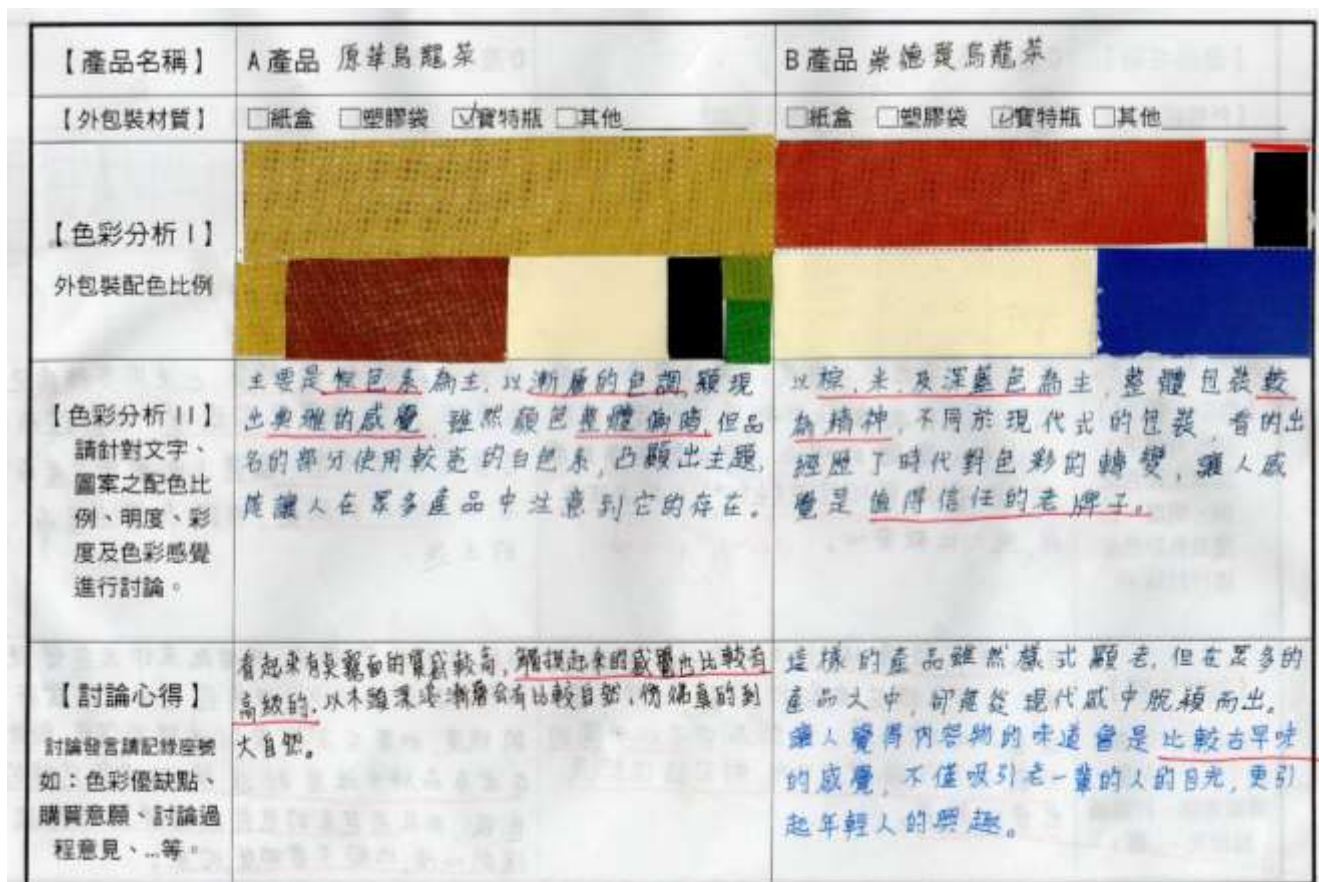 【產品名稱】
A產品 原萃烏龍茶
B產品 崇德發烏龍茶
【外包裝材質】
□紙盒 □塑膠袋 ☑寶特瓶 □其他
□紙盒 □塑膠袋 ☑寶特瓶 □其他
【色彩分析 I】
外包裝配色比例
【色彩分析 II】
請針對文字、
圖案之配色比
例、明度、彩
度及色彩感覺
進行討論。
主要是棕色系為主,以漸層的色調,顯現
出典雅的感覺,雖然顏色整體偏暗,但品
名的部分使用較亮的白色系,凸顯出主題,
能讓人在眾多產品中注意到它的存在。
以棕、米、及深藍色為主,整體包裝較
為精神,不同於現代式的包裝,看的出
經歷了時代對色彩的轉變,讓人感
覺是值得信任的老牌子。
【討論心得】
討論發言請記錄座號
如:色彩優缺點、
購買意願、討論過
程意見、...等。
看起來有質感較高,觸摸起來的感覺也比較有
高級的,以木頭深淺漸層會有比較自然,彷彿真的到
大自然。
這樣的產品雖然樣式顯老,但在眾多的
產品之中,卻能從現代感中脫穎而出。
讓人覺得內容物的味道會是比較古早味
的感覺,不僅吸引老一輩的人的目光,更引
起年輕人的興趣。